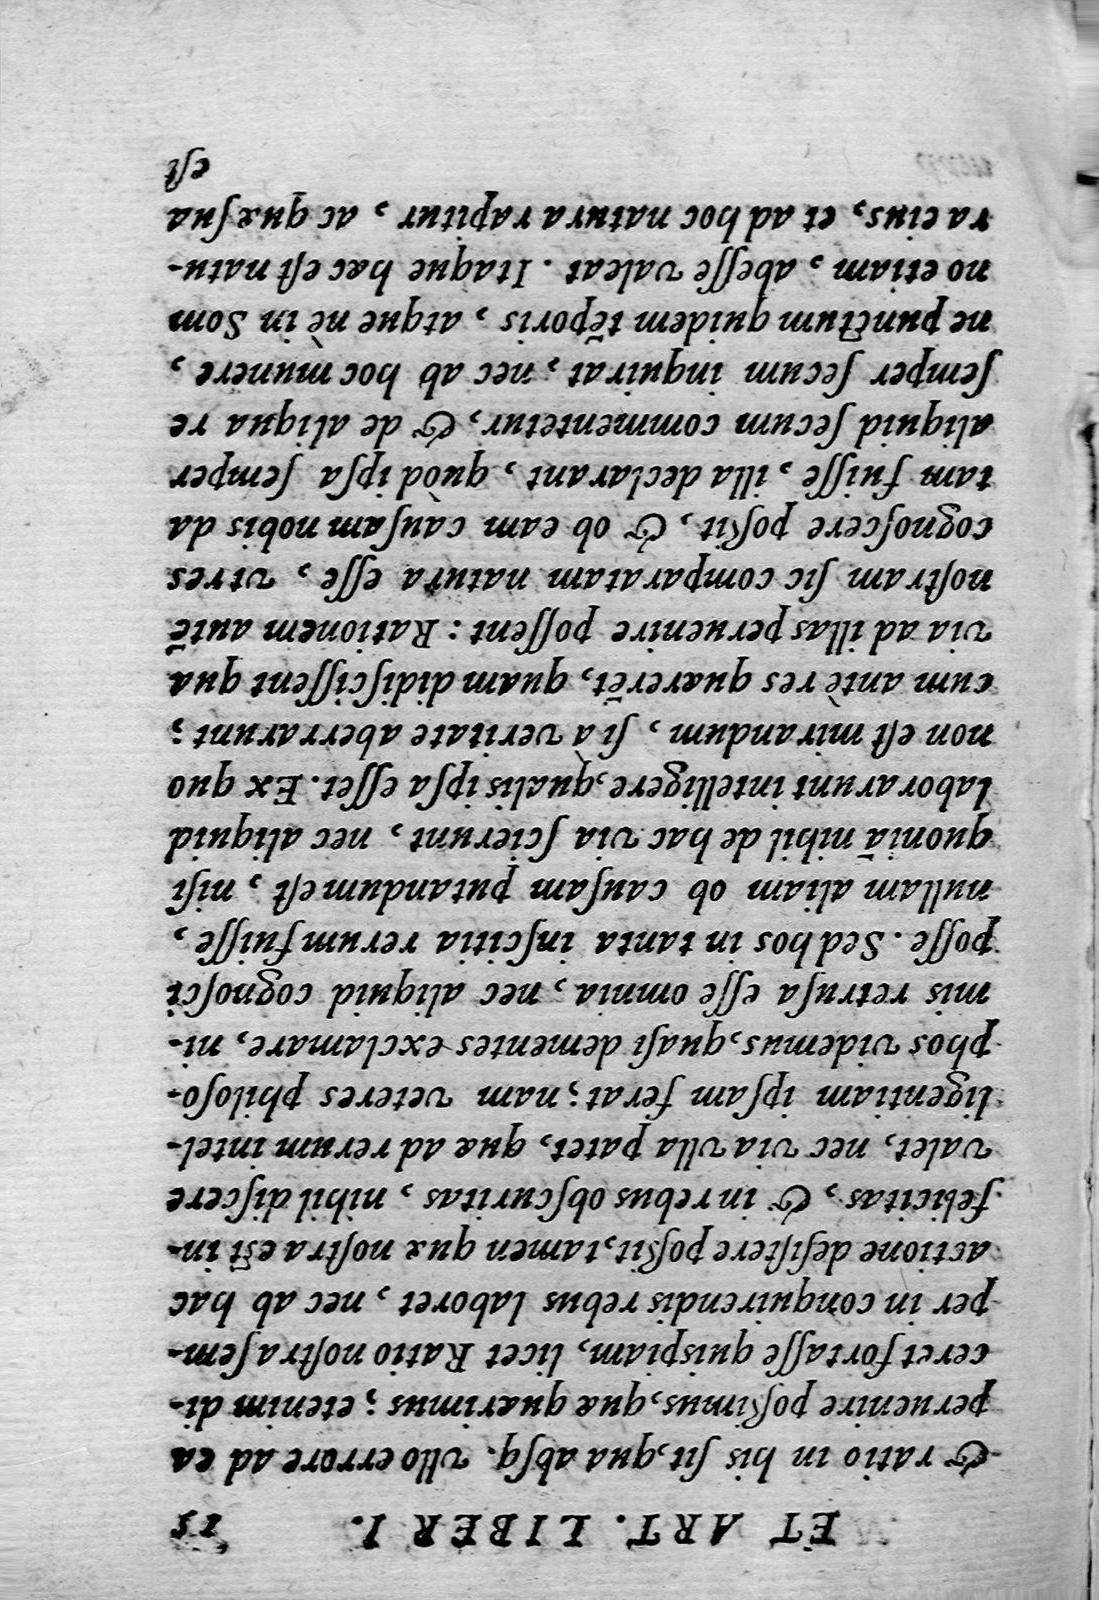 ET ART. LIBER I. 15
& ratio in his ſit, qua abſq. vllo errore ad ea
peruenire poßimus, quæ quærimus; etenim di-
ceret fortaſſe quispiam, licet Ratio noſtra ſem-
per in conquirendis rebus laboret, nec ab hac
actione deſiſtere poßit, tamen quæ noſtra eſt in-
felicitas, & in rebus obſcuritas, nihil diſcere
valet, nec via vlla patet, quæ ad rerum intel-
ligentiam ipſam ferat; nam veteres philoſo-
phos videmus, quaſi dementes exclamare, ni-
mis retruſa eſſe omnia, nec aliquid cognoſci
poſſe. Sed hos in tanta inſcitia rerum fuiſſe,
nullam aliam ob cauſam putandum eſt, niſi
quoniã nihil de hac via ſcierunt, nec aliquid
laborarunt intelligere, qualis ipſa eſſet. Ex quo
non eſt mirandum, ſi à veritate aberrarunt;
cum antè res quærerẽt, quam didiſciſſent qua
via ad illas peruenire poſſent: Rationem autẽ
noſtram ſic comparatam natura eſſe, vt res
cognoſcere poßit, & ob eam cauſam nobis da
tam fuiſſe, illa declarant, quòd ipſa ſemper
aliquid ſecum commentetur, & de aliqua re
ſemper ſecum inquirat, nec ab hoc munere,
ne punctum quidem tẽporis, atque nè in Som
no etiam, abeſſe valeat. Itaque hæc eſt natu-
ra eius, et ad hoc natura rapitur, ac quæ ſua
eſt